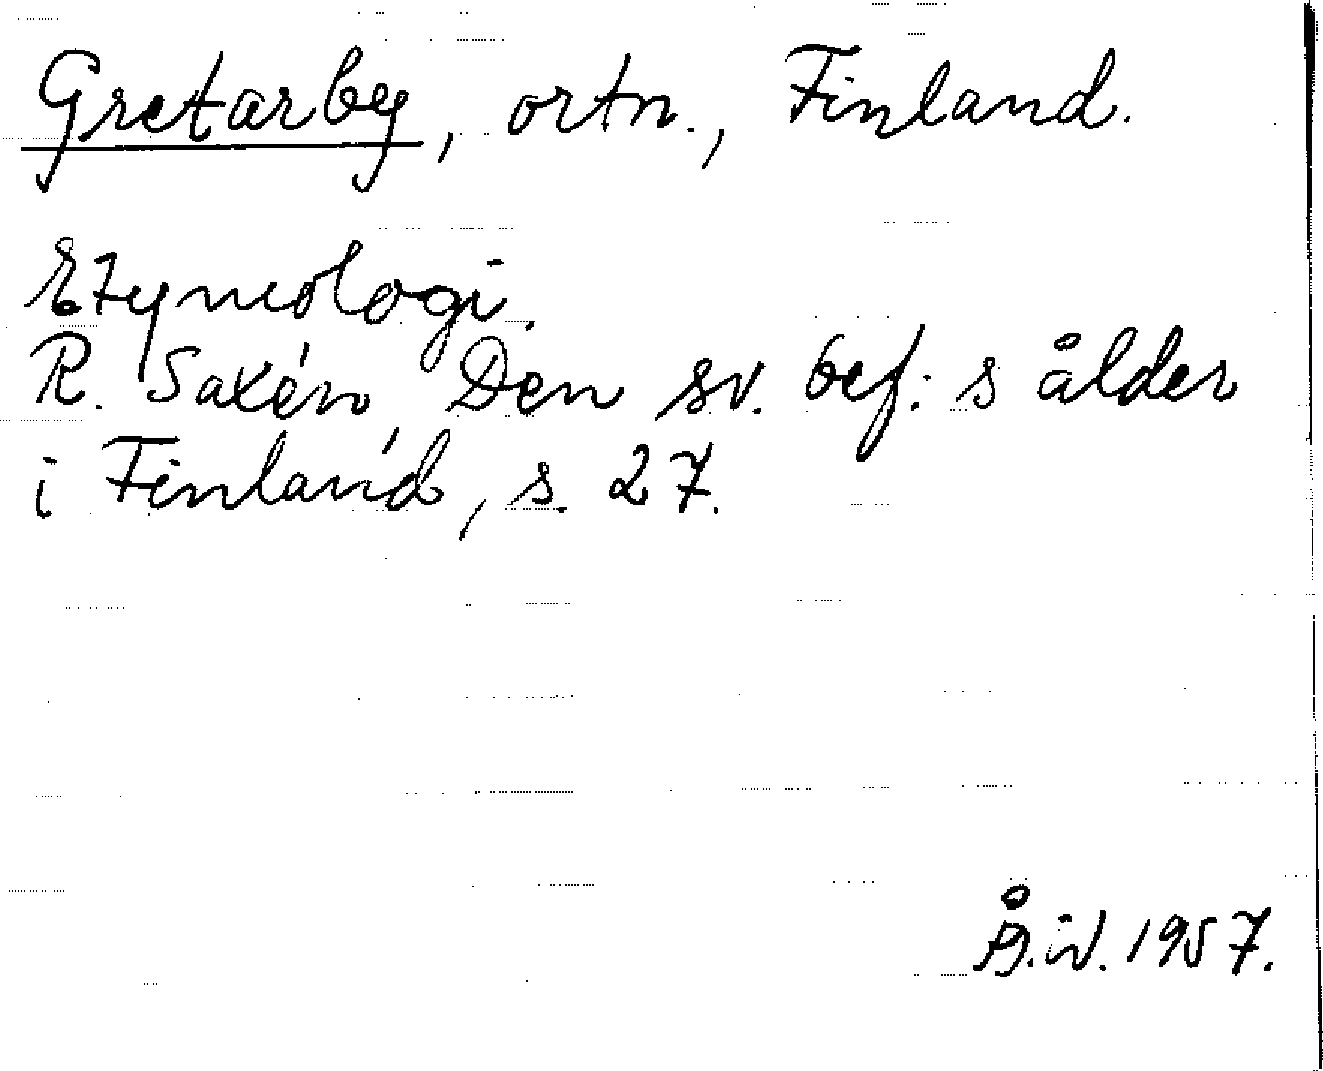 Gretarby, ortn., Finland.
Etymologi.
R. Saxén, Den sv. bef:s ålder
i Finland, s. 27.
1957.